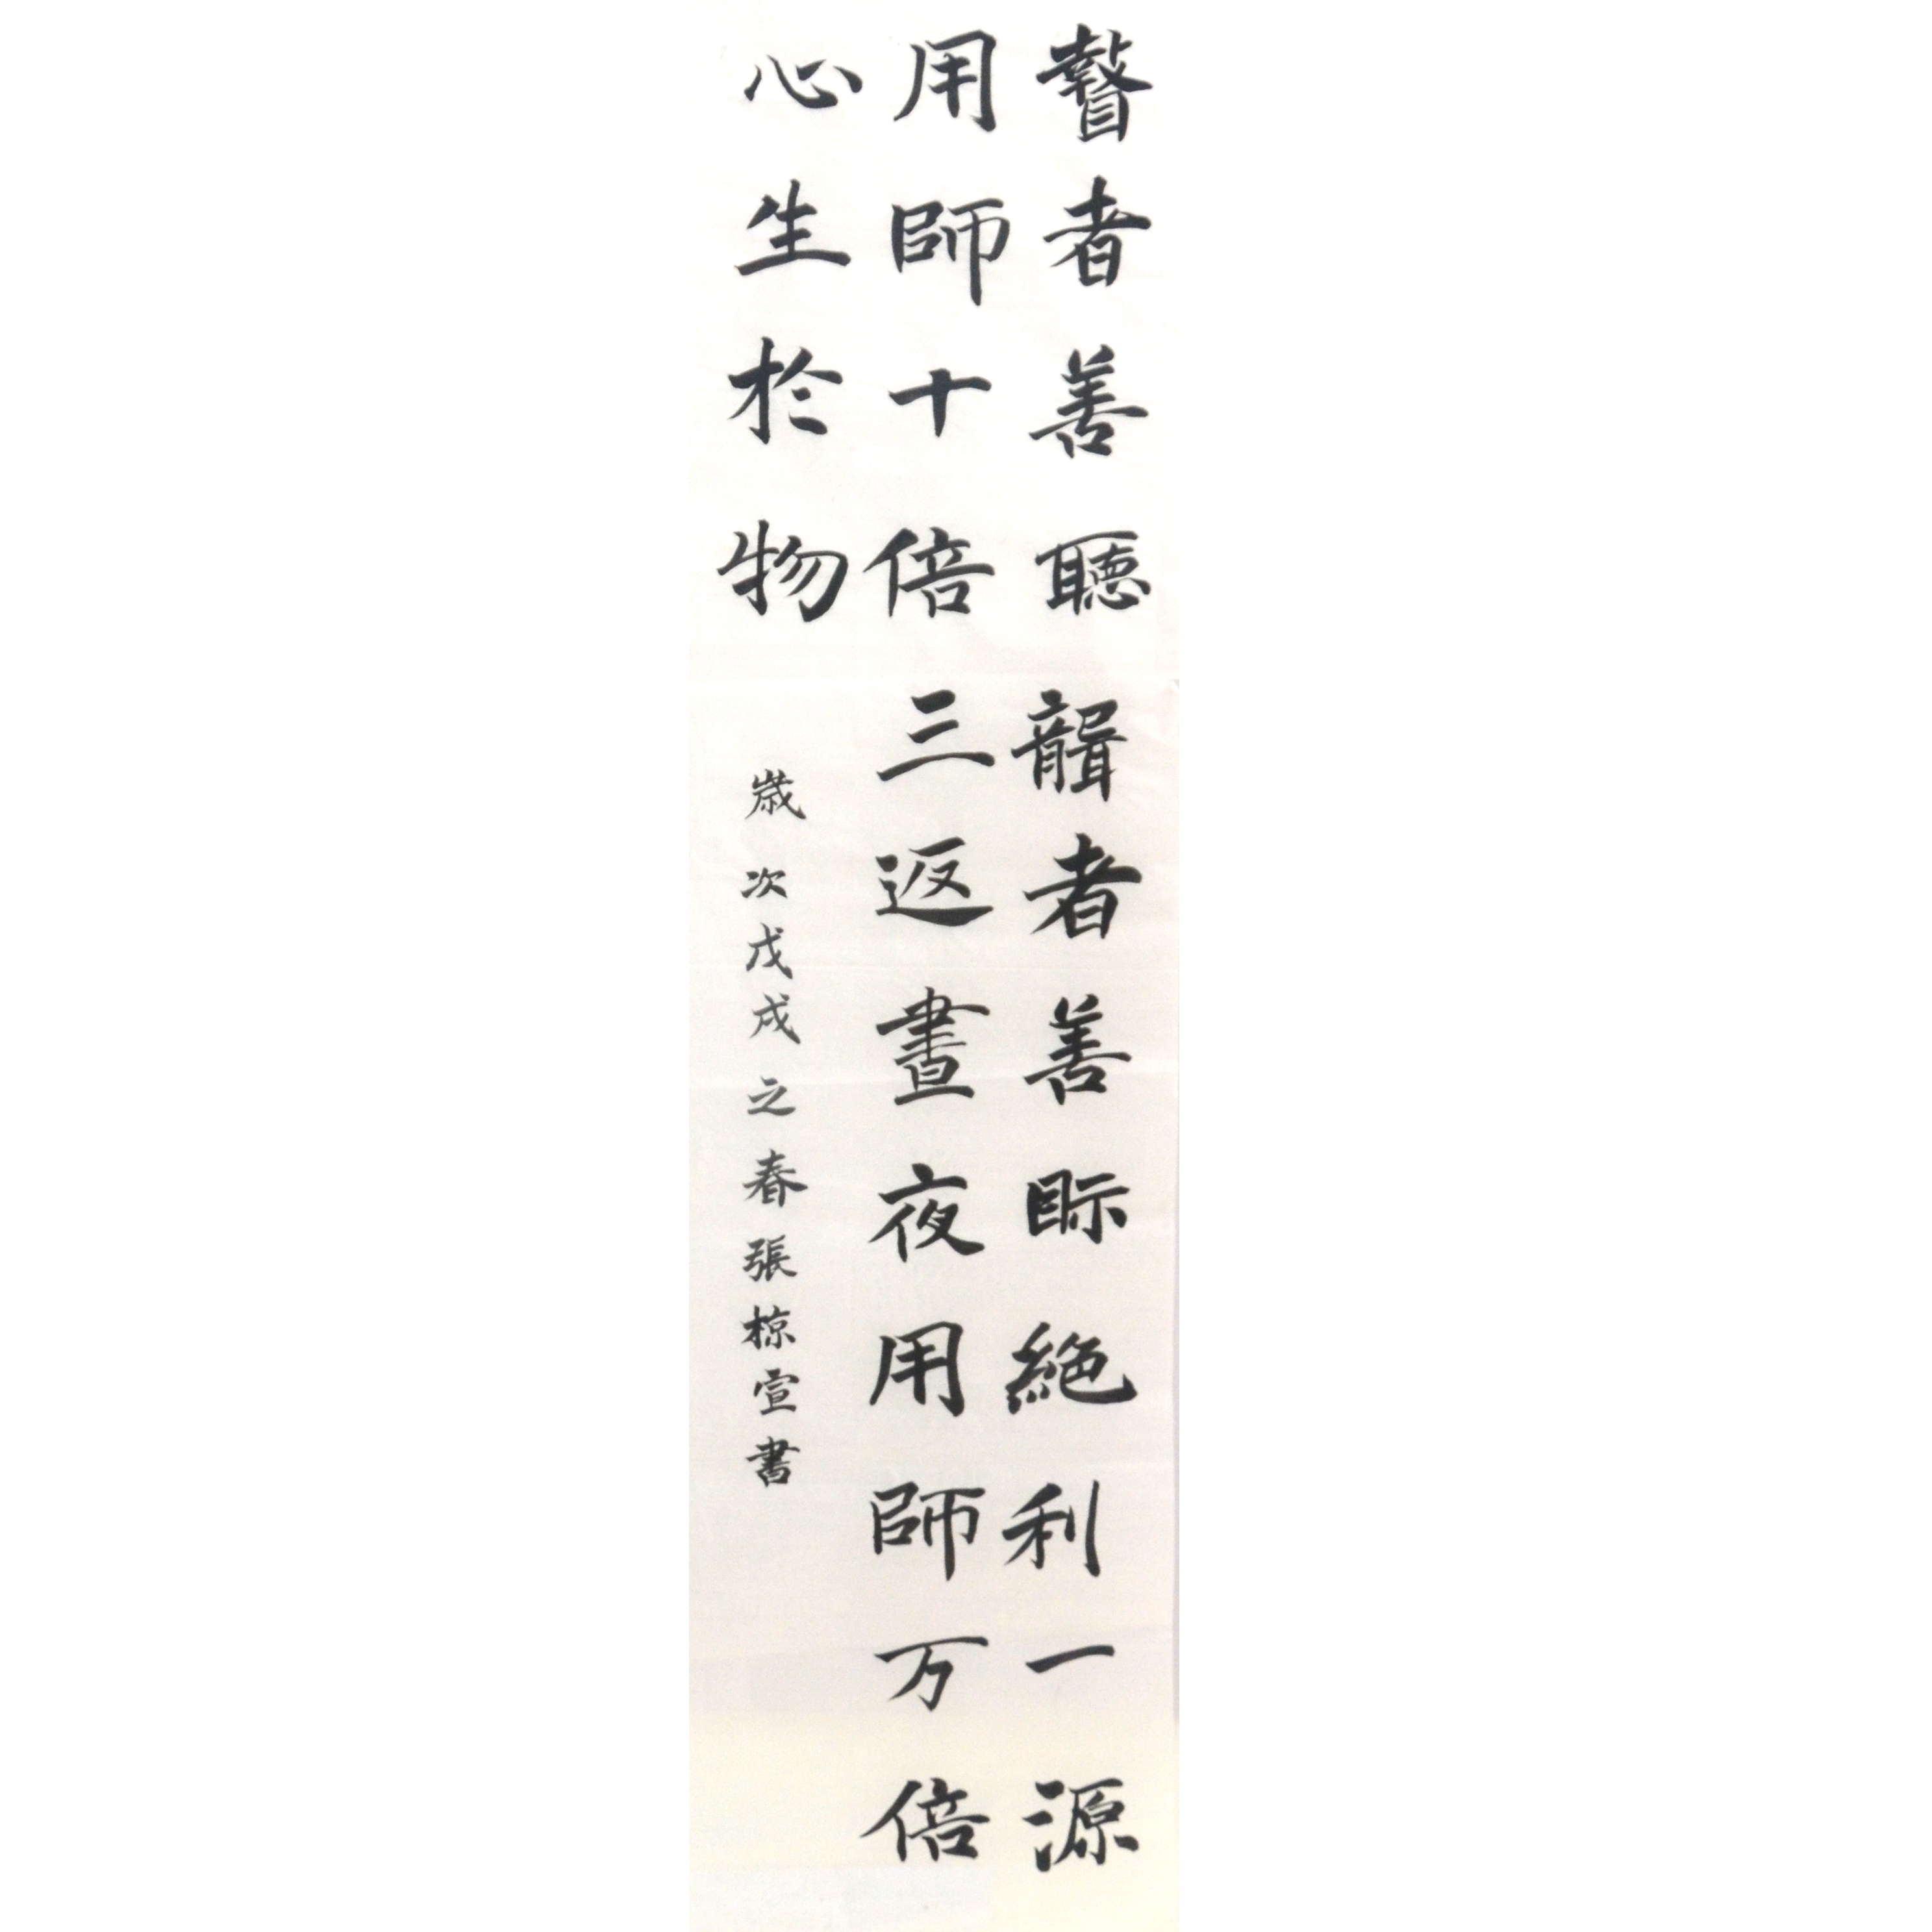 瞽者善聽聾者善眎絶利一源
用師十倍三返晝夜用師万倍
心生於物
歲次戊戌之春張椋宣書